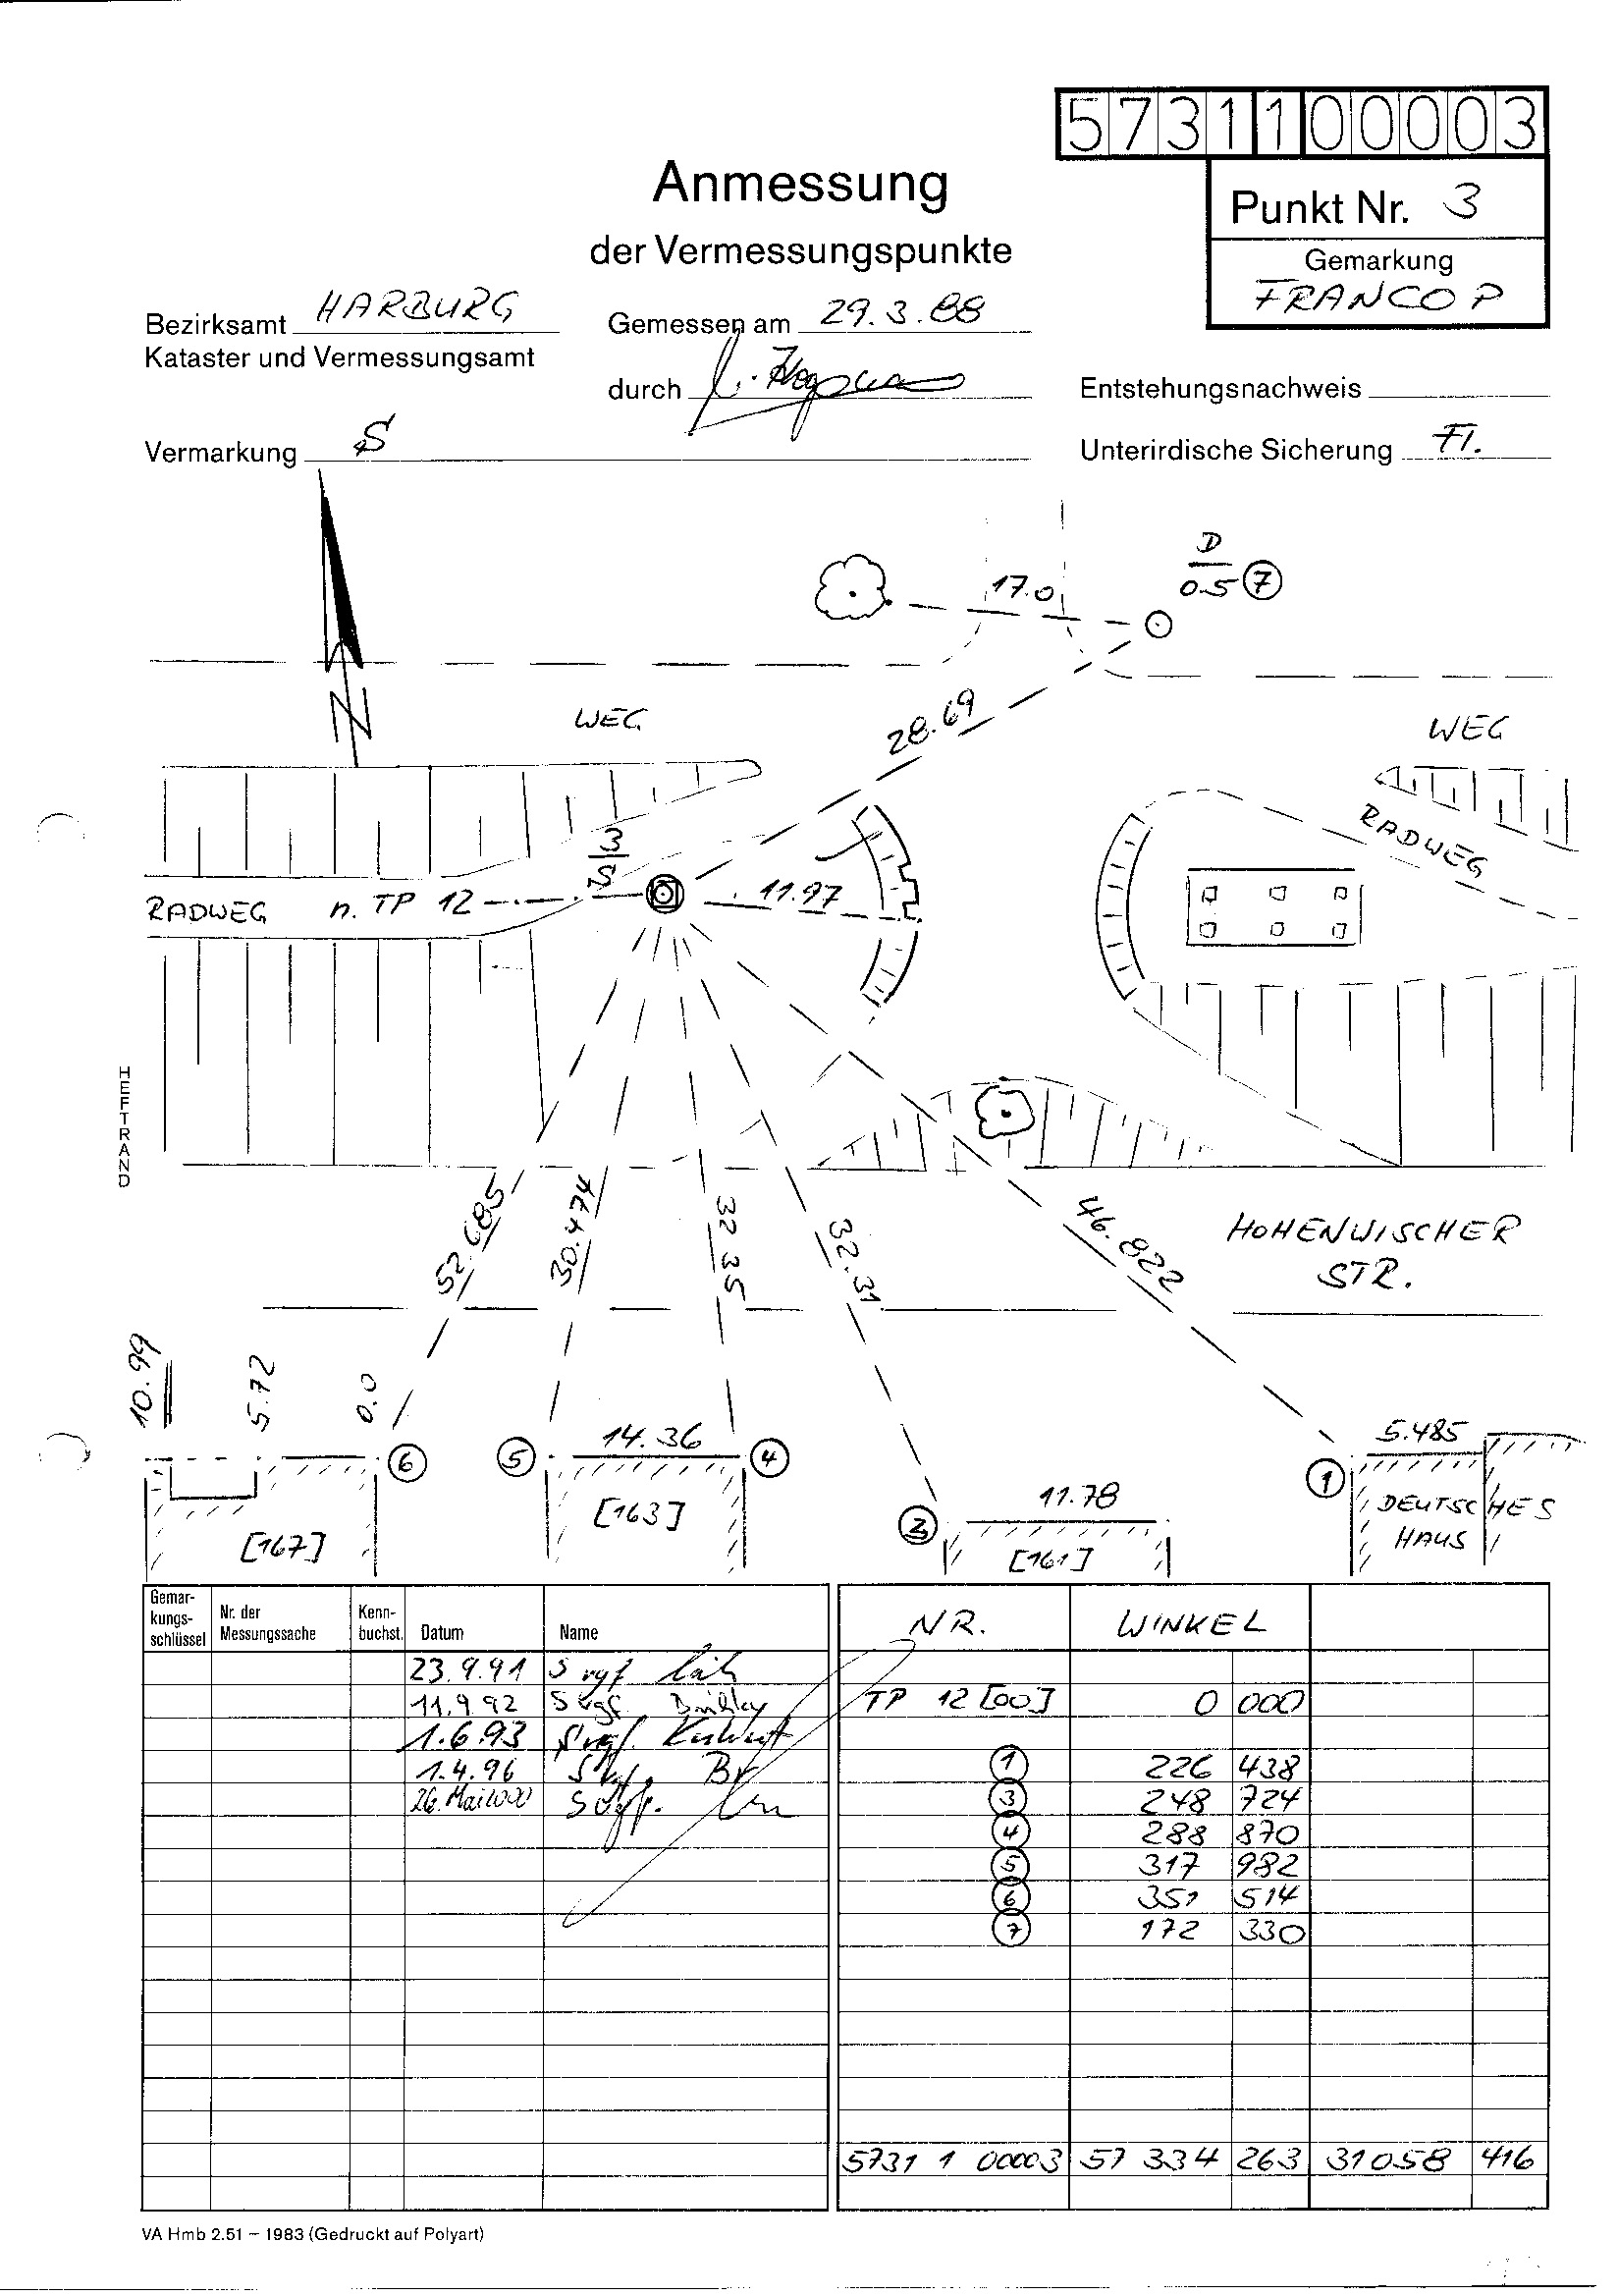 5731100003
Anmessung
der Vermessungspunkte
Punkt Nr. 3
Gemarkung
FRANCOP
Bezirksamt HARBURG
Kataster und Vermessungsamt
Gemessen am 29.3.88
durch
Entstehungsnachweis
Vermarkung S
Unterirdische Sicherung Fl.
D
0.5 7
17.0
N
WEG
28.69
WEG
RADWEG
3
S
RADWEG n. TP 12
11.97
HEFTRAND
52.685
30.474
32.35
32.31
46.822
HOHENWISCHER
STR.
10.99
5.72
0.0
6
5
14.36
4
5.485
1
3
11.78
[167]
[163]
[161]
DEUTSCHES
HAUS
Gemar-
kungs-
schlüssel
Nr. der
Messungssache
Kenn-
buchst.
Datum
Name
NR.
WINKEL
23.9.91 S vgf
11.9.92 S vgf
TP 12 [00] 0 000
1.6.93 S vgf.
1.4.96 S vgf. Br
1 226 438
26. Mai 2000 S vgf.
3 248 724
4 288 870
5 317 982
6 351 514
7 172 330
5731 1 00003 57 334 263 31058 416
VA Hmb 2.51 – 1983 (Gedruckt auf Polyart)